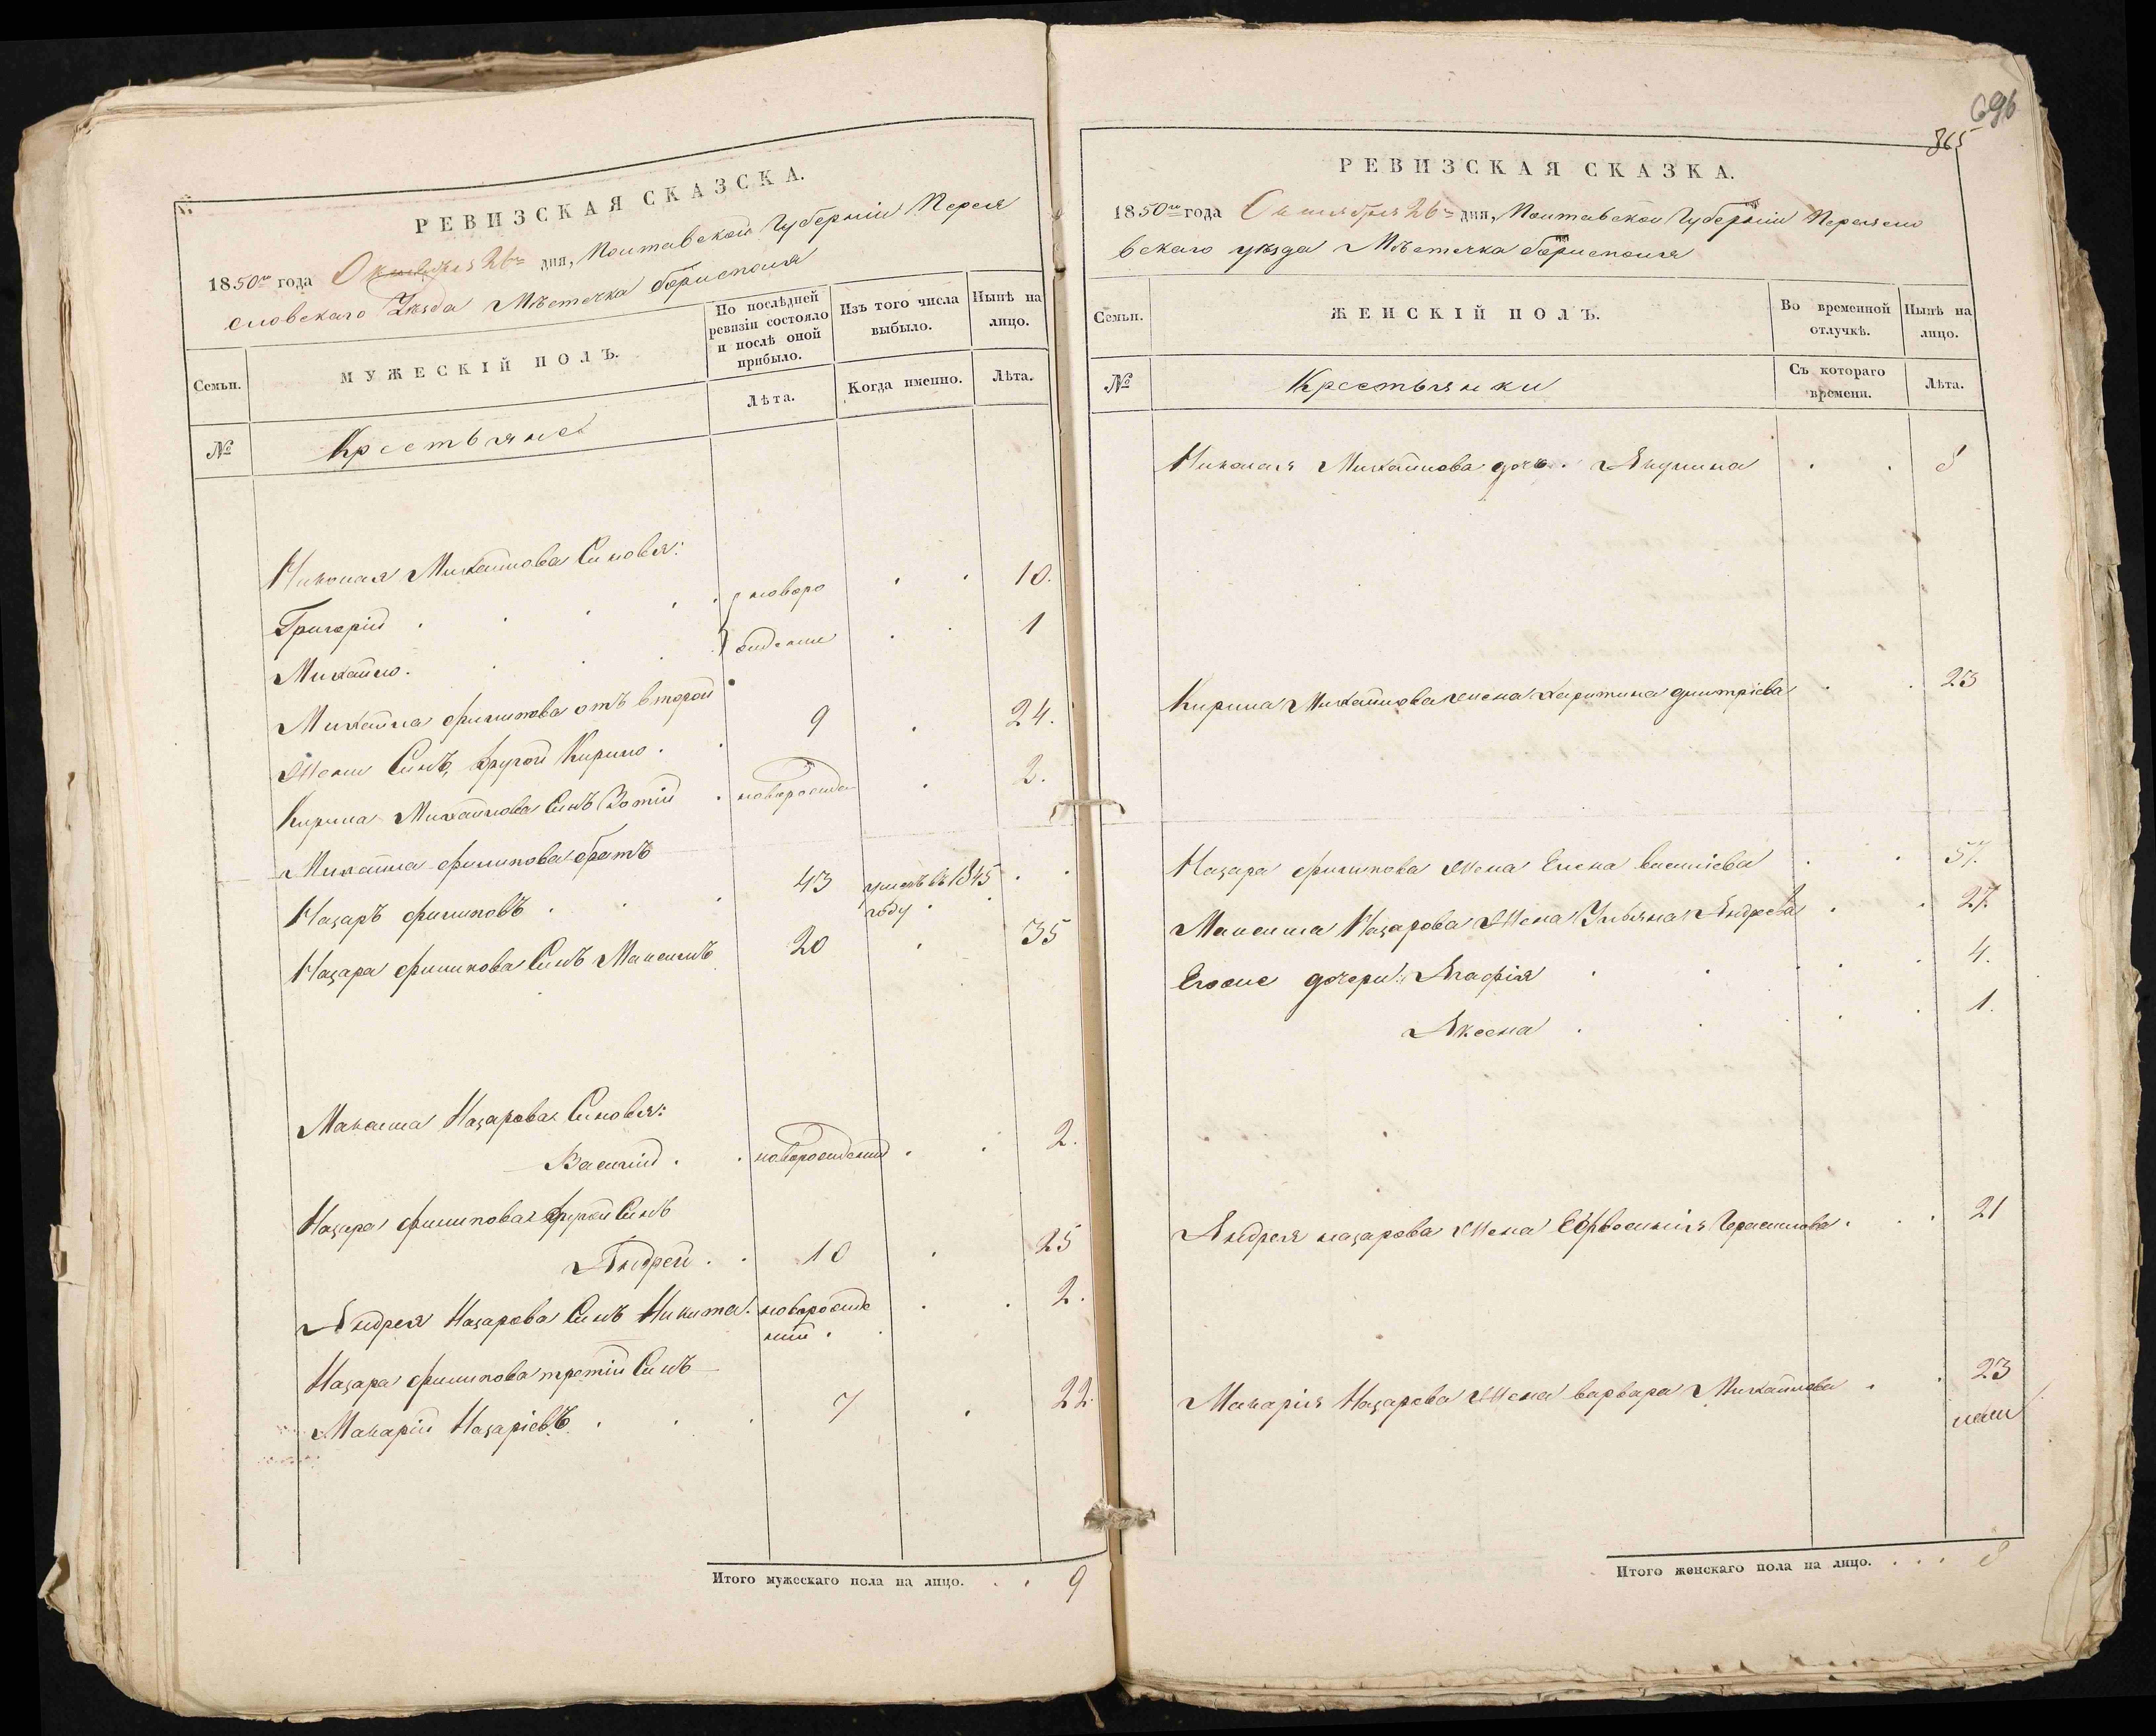 РЕВИЗСКАЯ СКАЗСКА.
1850го года Октября 26го дня, Полтавской Губерніи Перея
словскаго Уѣзда Мѣстечка борисполя
Семьи.
МУЖЕСКІЙ ПОЛЪ.
По послѣдней ревизіи состояло и послѣ оной прибыло.
Изъ того числа выбыло.
Нынѣ на лицо.
№
Крестьяне
Лѣта.
Когда именно.
Лѣта.
Николая Михайлова Сыновья:
Григорій . . . . новоро . . 10.
Михайло. . . . ждение . . 1
Михайла филипова отъ второй
Жены Сынъ, другой Кирило . . 9 . 24.
Кирила Михайлова Сынъ Зотій . новорожде . 2.
Михайла филипова братъ
Назаръ филиповъ . . . 43 умеръ въ 1845 . .
году . .
Назара филипова Сынъ Максимъ 20 . 35
Максима Назарова Сыновья:
Василій . . новорожденій . . 2.
Назара филипова другой Сынъ
Андрей . . 10 . 25
Андрея Назарова Сынъ Никита. новорожде . . 2.
ній . .
Назара филипова третій Сынъ
Макарій Назаріевъ. . . . 7 . 22.
Итого мужескаго пола на лицо. . . 9
696
865
РЕВИЗСКАЯ СКАЗКА.
1850го года Октября 26го дня, Полтавской Губерніи Переясло
вскаго уѣзда Мѣстечка борисполя
Семьи.
ЖЕНСКІЙ ПОЛЪ.
Во временной отлучкѣ.
Нынѣ на лицо.
№
Крестьянки
Съ котораго времени.
Лѣта.
Николая Михайлова дочь. Акулина . . 8
Кирила Михайлова жена Харитина дмитріева . . 23
Назара филипова Жена Елена василіева . . 57.
Максима Назарова Жена Ульяна Андреева . . 27.
Егоже дочери: Агафія . . . . 4.
Аксена . . . . 1.
Андрея назарова Жена Ефросинія Герасимова . . . 21
Макарія Назарова Жена варвара Михайлова . . 23
Итого женскаго пола на лицо. . . . 8